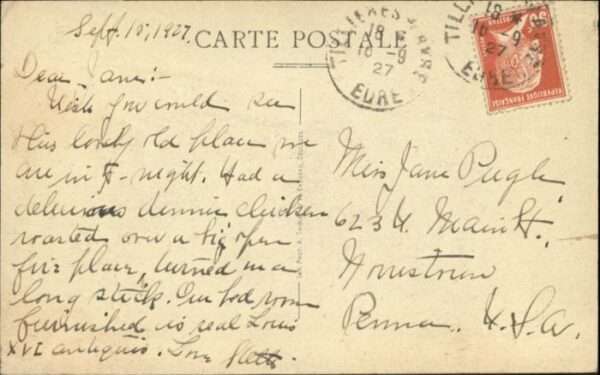 Sept. 10, 1927.
CARTE POSTALE
TILLIERES S AVRE
18
10 -9
27
EURE
TILL
18
10 -9
27
EURE
REPUBLIQUE FRANÇAISE
Dear Jane:-
Wish you could see
this lovely old place we
are in to-night. Had a
delicious dinner chicken
roasted over a big open
fire place, turned on a
long stick. Our bed room
furnished is real Louis
XVI antiques. Love
Miss Jane Pugh,
623 W. Main St.,
Norristown
Penna. U.S.A.